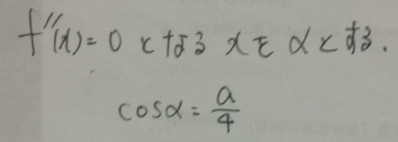 f''(x)=0 となる xを αとする.
cosα = a/4